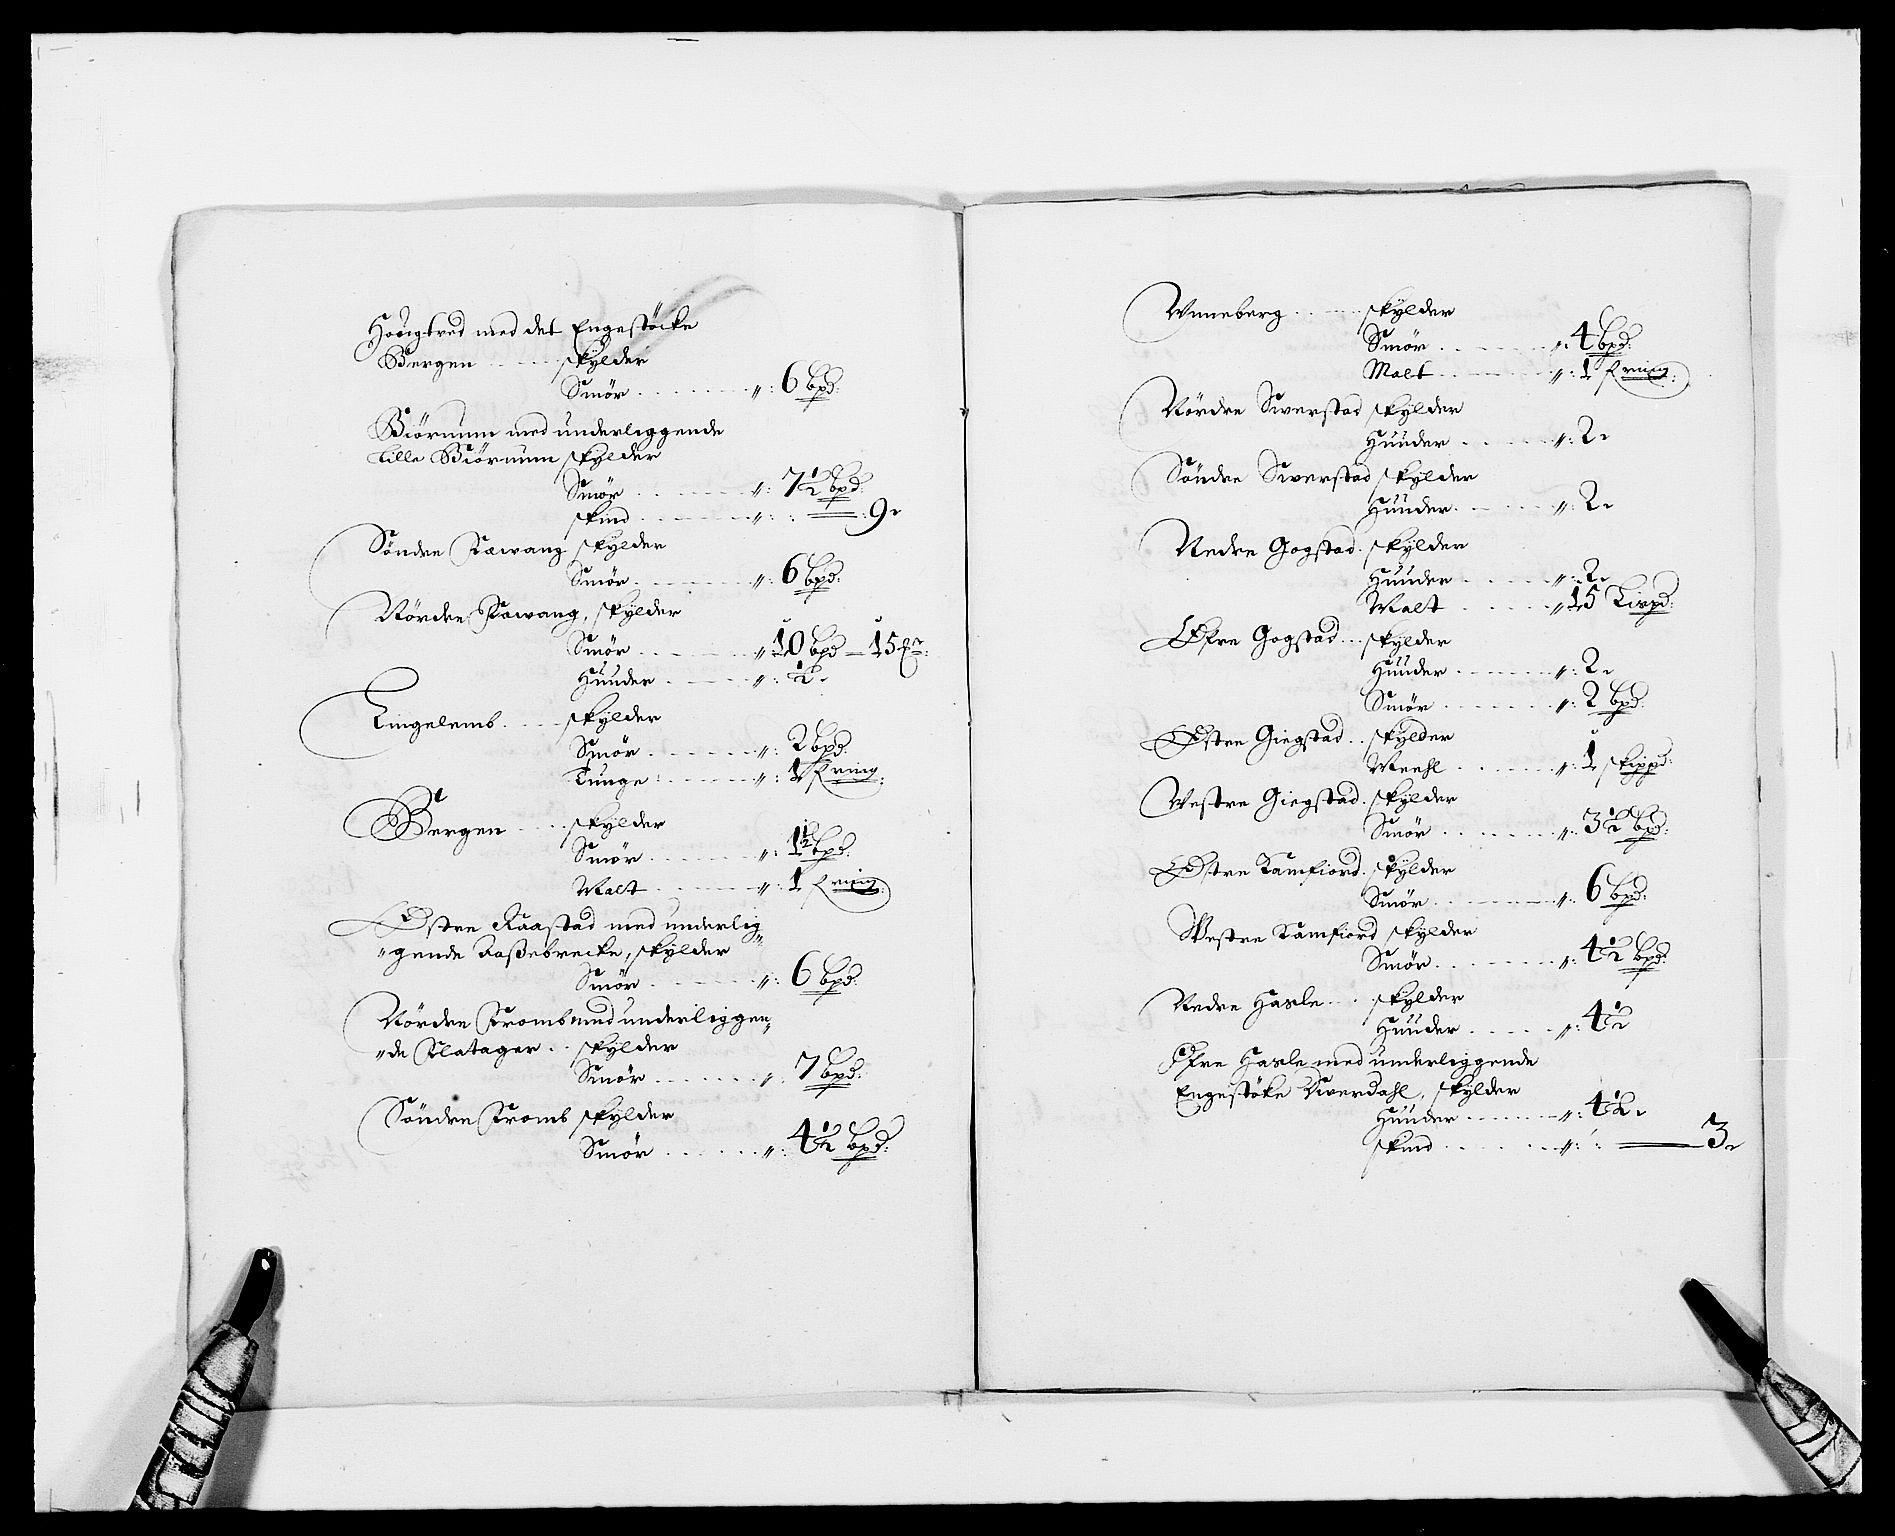 Hougtved med det Engestöcke
Bergen ..... skylder
Smör ........ ": 6 bpd:
Biörnum med underleggende
Lille Biörnum skylder
Smör ....... ": 7½ bpd:
skind ....... ": : ——— : 9.
Söndre Kawang skylder
Smör ....... ": 6 bpd:
Nördre Kawang, skylder
Smör ....... " 10 bpd — 15
Huuder ...... ": ½.
Lingelemb ..... skylder
Smör ....... ": 2 bpd:
Tunge : ...... ": 1 fring:
Bergen ..... skylder
Smör ....... ": 1½ bpd:
Malt ....... ": 1 fring:
Östre Raastad med underlig"
"gende Roßebrecke, skylder
Smör ....... ": 6 bpd:
Nördre Tromb med underliggen"
"de Klatager .. skylder
Smör ....... ": 7 bpd:
Söndre Tromb skylder
Smör ...... ": 4½ bpd:
Wnneberg ..... skylder
Smör ....... ": 4 bpd:
Malt ....... ": 1 fring:
Nördre Swerstad skylder
Huuder ...... ": 2.
Söndre Swerstad skylder
Huuder ..... ": 2.
Nedre Gogstad . skylder
Huuder ...... ": 2.
Malt ...... " 15 Lispd:
Öfre Gogstad ... skylder
Huuder ...... ": 2.
Smör ....... ": 2 bpd:
Östre Giegstad .. skylder
Meehl ...... ": 1 skippd:
Westre Giegstad . skylder
Smör ....... ": 3½ bpd:
Östre Kamfiord . skylder
Smör ....... ": 6 bpd:
Westre Kamfiord skylder
Smör ....... ": 4½ bpd:
Nedre Hasle ... skylder
Huuder ..... ": 4½
Öfre Hasle med underliggende
Engestöke Wverdahl, skylder
Huuder ...... ": 4½.
skind ....... ": : ——— 3.